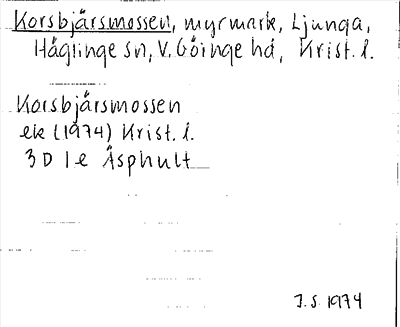 Korsbjärsmossen, myrmark, Ljunga,
Häglinge sn, V. Göinge hd, Krist. l.
Korsbjärsmossen
ek (1974) Krist. l.
3 D 1 e Äsphult
J. S. 1974